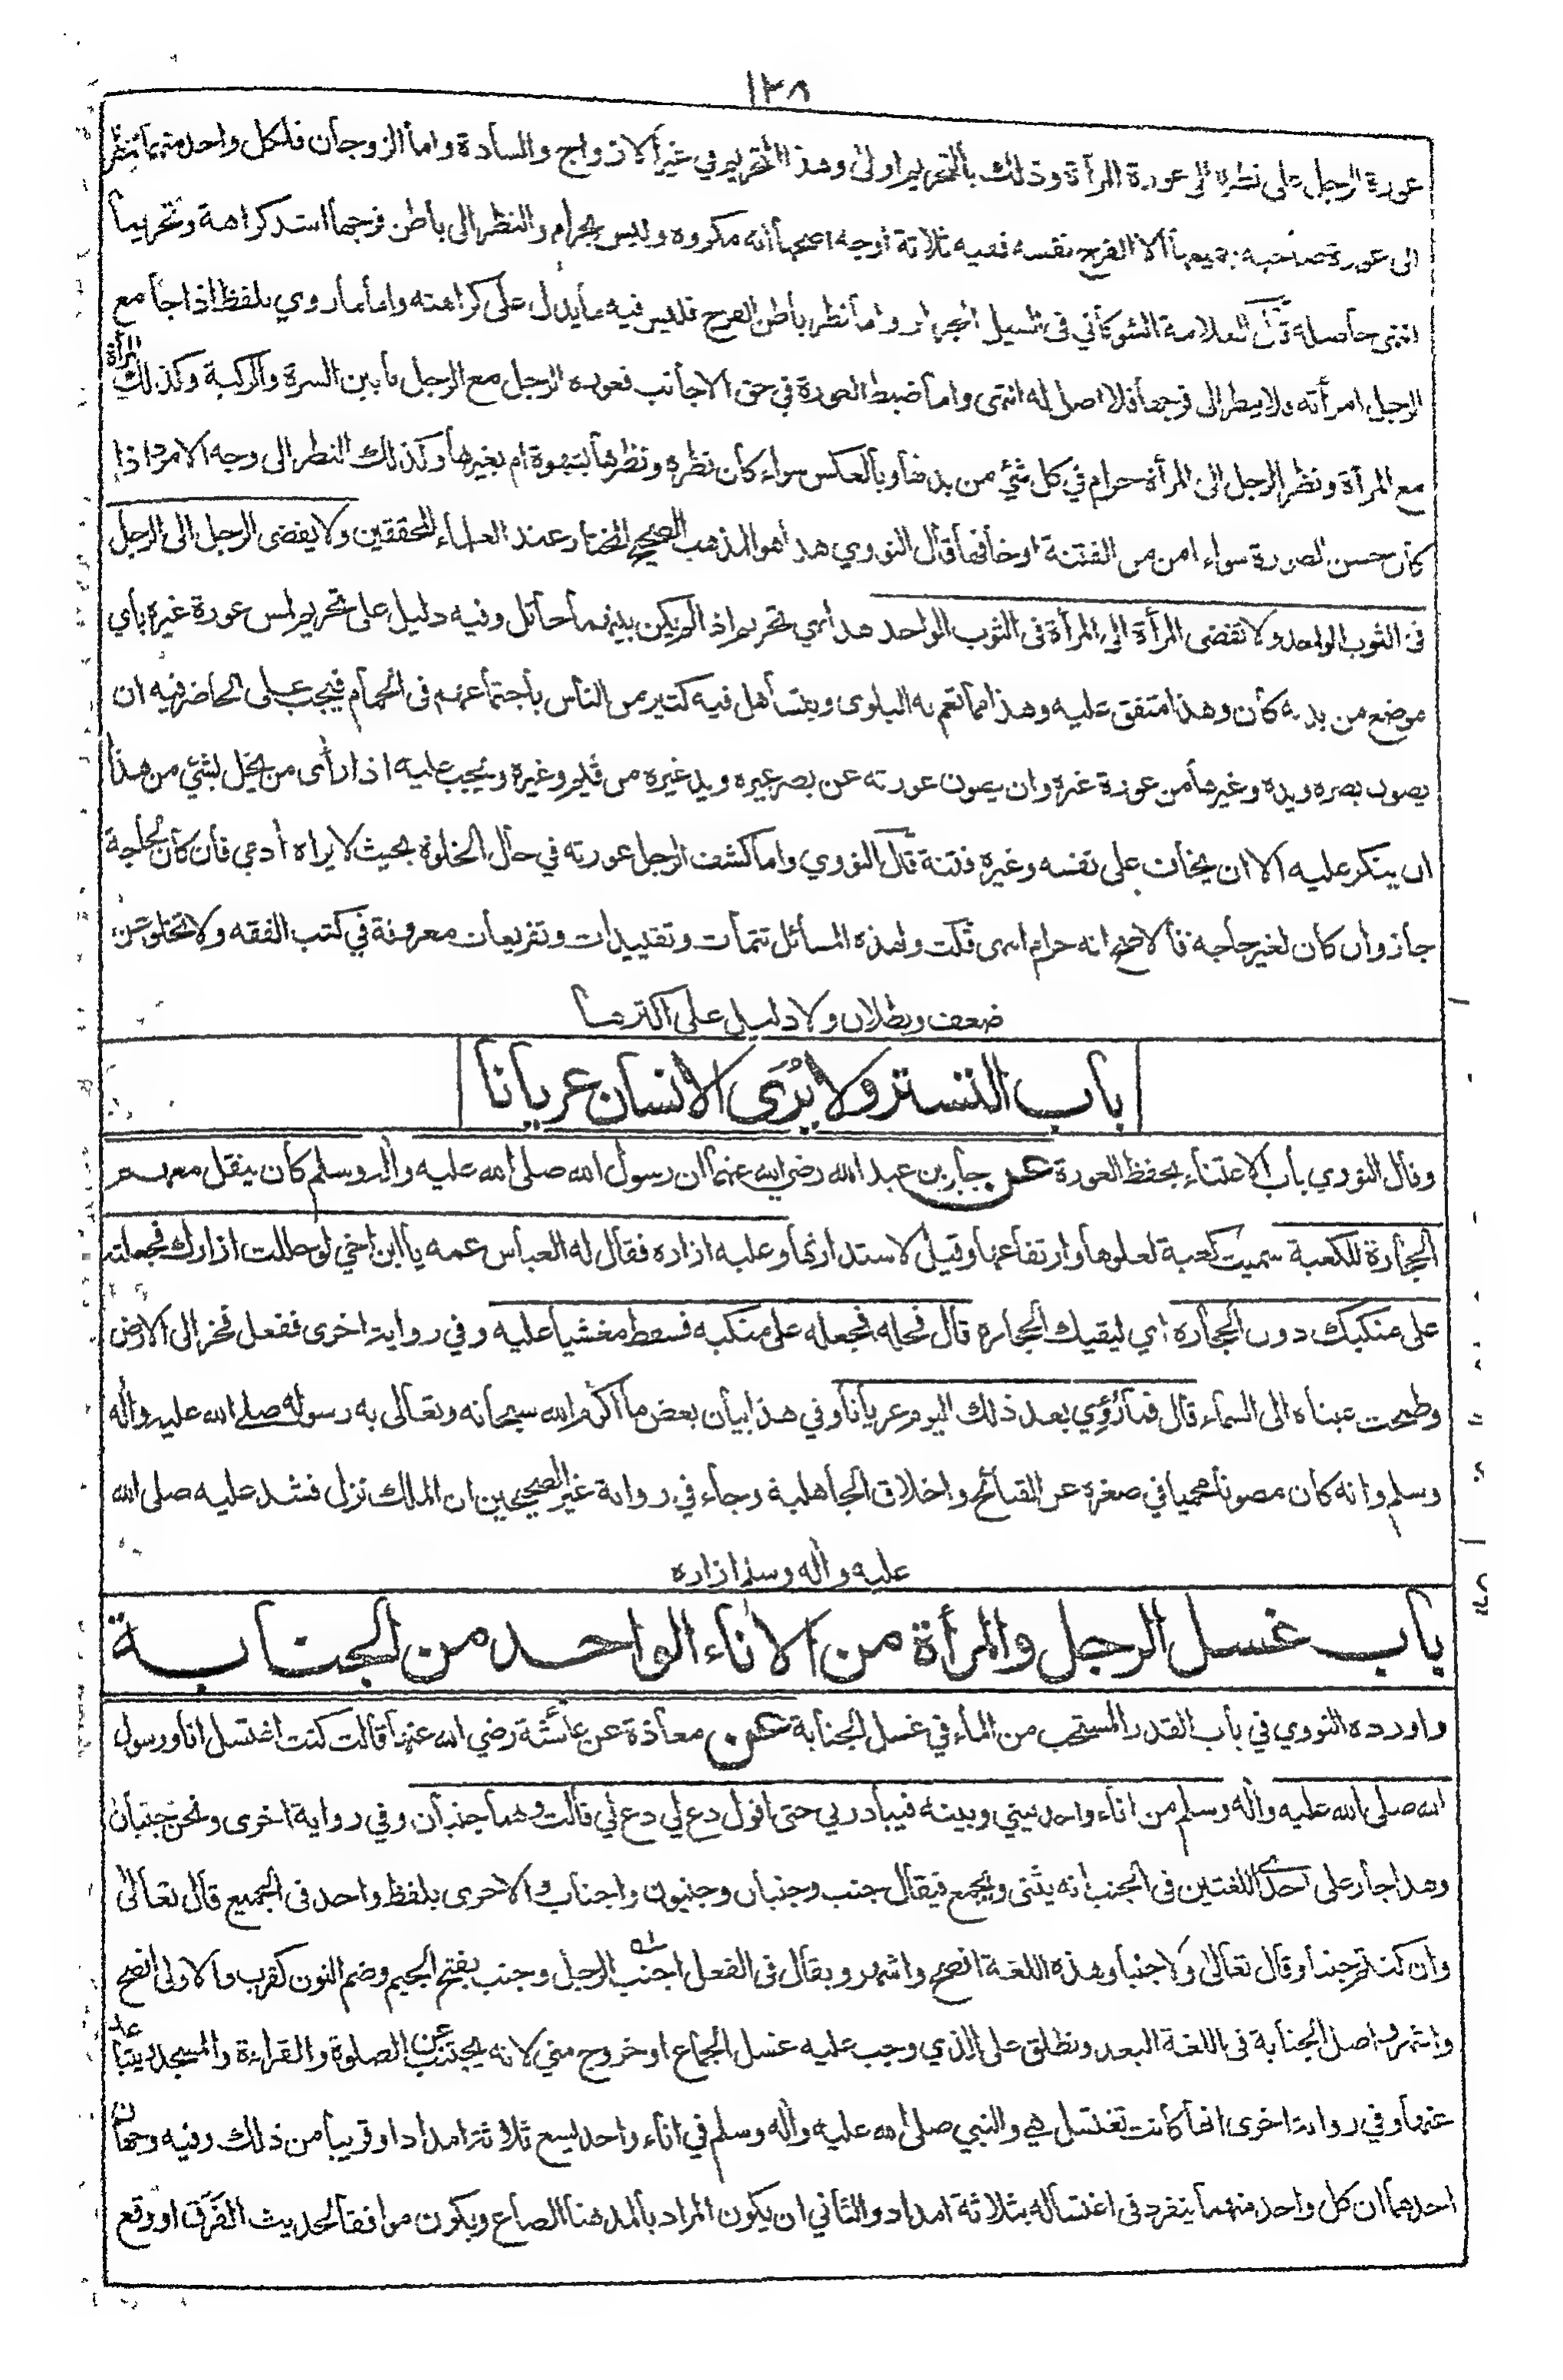 ١٣٨
عورة الرجل على نظره الى عورة المرأة وذلك بالتحريم اولى وهذا التحريم في غير الازواج والسادة واما الزوجان فلكل واحد منهما النظر
الى عورة صاحبه جميعها الا الفرج نفسه ففيه ثلاثة اوجه اصحها انه مكروه وليس بحرام والنظر الى باطن فرجها اشد كراهة وتحريما
انتهى حاصله قال العلامة الشوكاني في السيل الجرار واما نظر باطن الفرج فليس فيه ما يدل على كراهته واما ما روي بلفظ اذا جامع
الرجل امرأته ولا ينظر الى فرجها فلا اصل له انتهى واما ضبط العورة في حق الاجانب فعورة الرجل مع الرجل ما بين السرة والركبة وكذلك المرأة
مع المرأة ونظر الرجل الى المرأة حرام في كل شئ من بدنها وبالعكس سواء كان نظره ونظرها بشهوة ام بغيرها وكذلك النظر الى وجه الامرد اذا
كان حسن الصورة سواء امن من الفتنة او خافها قال النووي هذا هو المذهب الصحيح المختار عند العلماء المحققين ولا يفضى الرجل الى الرجل
فى الثوب الواحد ولا تفضى المرأة الى المرأة فى الثوب الواحد هذا نهي تحريم اذا لم يكن بينهما حائل وفيه دليل على تحريم لمس عورة غيره باي
موضع من بدنه كان وهذا متفق عليه وهذا مما تعم به البلوى ويتساهل فيه كثير من الناس باجتماعهم فى الحمام فيجب على الحاضر فيه ان
يصون بصره ويده وغيرها من عورة غيره وان يصون عورته عن بصر غيره ويد غيره من قيم وغيره ويجب عليه اذا رأى من يخل بشئ من هذا
ان ينكر عليه الا ان يخاف على نفسه وغيره فتنة قال النووي واما كشف الرجل عورته في حال الخلوة بحيث لا يراه آدمي فان كان لحاجة
جاز وان كان لغير حاجة فالاصح انه حرام انتهى قلت ولهذه المسائل تتمات وتقييدات وتفريعات معروفة في كتب الفقه ولا تخلو عن
ضعف وبطلان ولا دليل على اكثرها
باب التستر ولا يُرَى الانسان عريانا
وقال النووي باب الاعتناء بحفظ العورة عن جابر بن عبد الله رضي الله عنهما ان رسول الله صلى الله عليه واله وسلم كان ينقل معهم
الحجارة للكعبة سميت كعبة لعلوها وارتفاعها وقيل لاستدارتها وعليه ازاره فقال له العباس عمه يا ابن اخي لو حللت ازارك فجعلته
على منكبك دون الحجارة اي ليقيك الحجارة قال فحله فجعله على منكبه فسقط مغشيا عليه وفي رواية اخرى ففعل فخر الى الارض
وطمحت عيناه الى السماء قال فما رُؤِي بعد ذلك اليوم عريانا وفي هذا بيان بعض ما اكرم الله سبحانه وتعالى به رسوله صلى الله عليه واله
وسلم وانه كان مصونا محميا في صغره عن القبائح واخلاق الجاهلية وجاء في رواية غير الصحيحين ان الملك نزل فشد عليه صلى الله
عليه واله وسلم ازاره
باب غسل الرجل والمرأة من الاناء الواحد من الجنابة
واورده النووي في باب القدر المستحب من الماء في غسل الجنابة عن معاذة عن عائشة رضي الله عنها قالت كنت اغتسل انا ورسول
الله صلى الله عليه واله وسلم من اناء واحد بيني وبينه فيبادرني حتى اقول دع لي دع لي قالت وهما جنبان وفي رواية اخرى ونحن جنبان
وهذا جار على احدى اللغتين فى الجنب انه يثنى ويجمع فيقال جنب وجنبان وجنبون واجناب والاخرى بلفظ واحد فى الجميع قال تعالى
وان كنتم جنبا وقال تعالى ولا جنبا وهذه اللغة افصح واشهر ويقال فى الفعل اجنب الرجل وجنب بفتح الجيم وضم النون كقرب والاولى افصح
واشهر واصل الجنابة فى اللغة البعد وتطلق على الذي وجب عليه غسل الجماع او خروج مني لانه يجتنب عن الصلوة والقراءة والمسجد ويتباعد
عنها وفي رواية اخرى انها كانت تغتسل هي والنبي صلى الله عليه واله وسلم في اناء واحد يسع ثلاثة امداد او قريبا من ذلك وفيه وجهان
احدهما ان كل واحد منهما ينفرد فى اغتساله بثلاثة امداد والثاني ان يكون المراد بالمد هنا الصاع ويكون موافقا لحديث الفَرَق او وقع